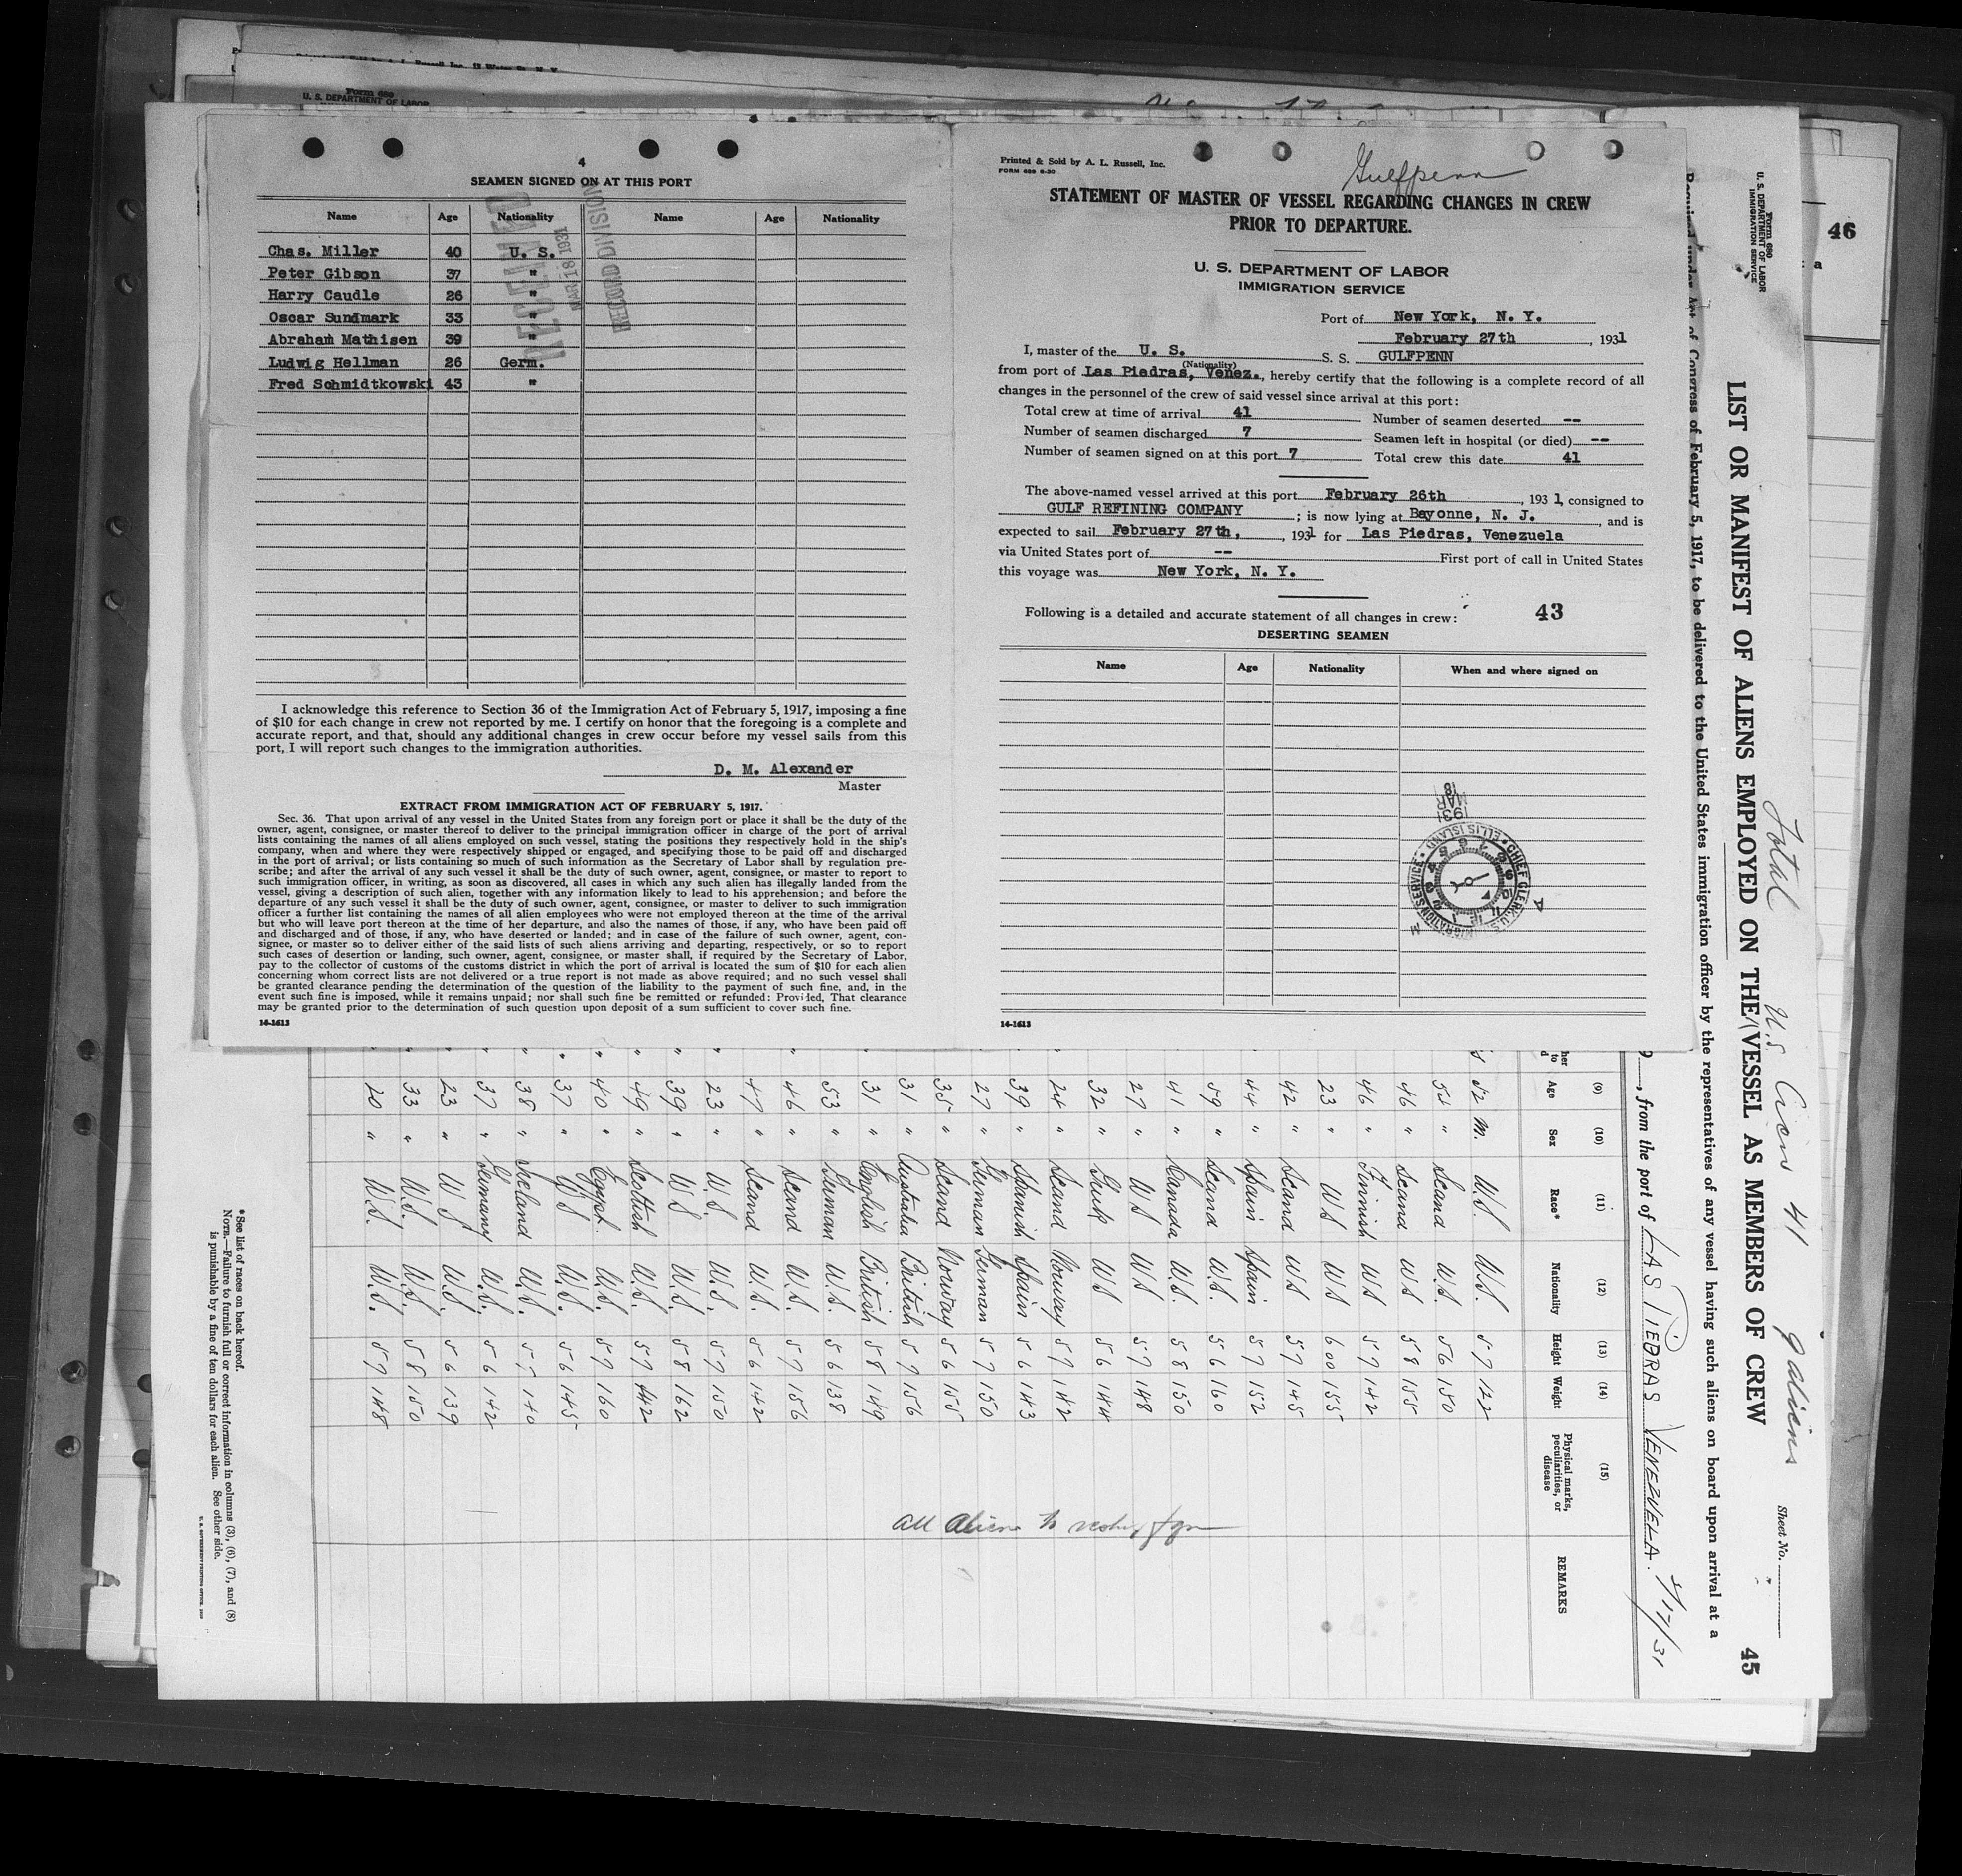 4
SEAMEN SIGNED ON AT THIS PORT
Name Age Nationality Name Age Nationality
Chas. Miller 40 U. S.
Peter Gibson 37 "
Harry Caudle 26 "
Oscar Sundmark 33 "
Abraham Mathisen 39 "
Ludwig Hellman 26 Germ.
Fred Schmidtkowski 43 "
RECEIVED
MAR 18 1931
RECORD DIVISION
I acknowledge this reference to Section 36 of the Immigration Act of February 5, 1917, imposing a fine
of $10 for each change in crew not reported by me. I certify on honor that the foregoing is a complete and
accurate report, and that, should any additional changes in crew occur before my vessel sails from this
port, I will report such changes to the immigration authorities.
D. M. Alexander
Master
EXTRACT FROM IMMIGRATION ACT OF FEBRUARY 5, 1917.
Sec. 36. That upon arrival of any vessel in the United States from any foreign port or place it shall be the duty of the
owner, agent, consignee, or master thereof to deliver to the principal immigration officer in charge of the port of arrival
lists containing the names of all aliens employed on such vessel, stating the positions they respectively hold in the ship's
company, when and where they were respectively shipped or engaged, and specifying those to be paid off and discharged
in the port of arrival; or lists containing so much of such information as the Secretary of Labor shall by regulation pre-
scribe; and after the arrival of any such vessel it shall be the duty of such owner, agent, consignee, or master to report to
such immigration officer, in writing, as soon as discovered, all cases in which any such alien has illegally landed from the
vessel, giving a description of such alien, together with any information likely to lead to his apprehension; and before the
departure of any such vessel it shall be the duty of such owner, agent, consignee, or master to deliver to such immigration
officer a further list containing the names of all alien employees who were not employed thereon at the time of the arrival
but who will leave port thereon at the time of her departure, and also the names of those, if any, who have been paid off
and discharged and of those, if any, who have deserted or landed; and in case of the failure of such owner, agent, con-
signee, or master so to deliver either of the said lists of such aliens arriving and departing, respectively, or so to report
such cases of desertion or landing, such owner, agent, consignee, or master shall, if required by the Secretary of Labor,
pay to the collector of customs of the customs district in which the port of arrival is located the sum of $10 for each alien
concerning whom correct lists are not delivered or a true report is not made as above required; and no such vessel shall
be granted clearance pending the determination of the question of the liability to the payment of such fine, and, in the
event such fine is imposed, while it remains unpaid; nor shall such fine be remitted or refunded: Provided, That clearance
may be granted prior to the determination of such question upon deposit of a sum sufficient to cover such fine.
14-1613
Printed & Sold by A. L. Russell, Inc.
FORM 689 6-30
Gulfpenn
STATEMENT OF MASTER OF VESSEL REGARDING CHANGES IN CREW
PRIOR TO DEPARTURE.
U. S. DEPARTMENT OF LABOR
IMMIGRATION SERVICE
Port of New York, N. Y.
February 27th, 1931
I, master of the U. S. S. S. GULFPENN
(Nationality)
from port of Las Piedras, Venez., hereby certify that the following is a complete record of all
changes in the personnel of the crew of said vessel since arrival at this port:
Total crew at time of arrival 41 Number of seamen deserted --
Number of seamen discharged 7 Seamen left in hospital (or died) --
Number of seamen signed on at this port 7 Total crew this date 41
The above-named vessel arrived at this port February 26th, 1931, consigned to
GULF REFINING COMPANY; is now lying at Bayonne, N. J., and is
expected to sail February 27th, 1931 for Las Piedras, Venezuela
via United States port of -- First port of call in United States
this voyage was New York, N. Y.
Following is a detailed and accurate statement of all changes in crew: 43
DESERTING SEAMEN
Name Age Nationality When and where signed on
1931 MAR 18
CHIEF CLERK, U. S. IMMIGRATION SERVICE ELLIS ISLAND
14-1613
46
Form 680
U. S. DEPARTMENT OF LABOR
IMMIGRATION SERVICE
Total U.S. Crew 41 9 aliens
Sheet No.
LIST OR MANIFEST OF ALIENS EMPLOYED ON THE VESSEL AS MEMBERS OF CREW 45
Required under Act of Congress of February 5, 1917, to be delivered to the United States immigration officer by the representatives of any vessel having such aliens on board upon arrival at a
, from the port of LAS PIEDRAS VENEZUELA.
(9) (10) (11) (12) (13) (14) (15)
Age Sex Race* Nationality Height Weight Physical marks, peculiarities, or disease REMARKS
52 M. U.S. U.S. 5 7 122
52 " Scand U.S. 5 6 150
46 " Scand U S 5 8 155
46 " Finnish U S 5 7 142
23 " U S U S 6 00 155
42 " Scand U S 5 7 145
44 " Spain Spain 5 7 152
59 " Scand U.S. 5 6 160
41 " Canada U.S. 5 8 150
27 " U S U S 5 7 148
32 " Greek U S 5 6 144
24 " Scand Norway 5 7 142
39 " Spanish Spain 5 6 143
27 " German German 5 7 150
35 " Scand Norway 5 6 155
31 " Australia British 5 7 156
31 " English British 5 8 149
53 " German U.S. 5 6 138
46 " Scand U.S. 5 7 156
47 " Scand U.S. 5 6 142
23 " U.S. U.S. 5 7 150
39 " U S U.S. 5 8 162
49 " Scottish U.S. 5 7 142
40 " Egypt. U.S. 5 7 160
37 " U S U.S. 5 6 145
38 " Ireland U.S. 5 5 140
37 " Germany U.S. 5 6 142
23 " U S U.S. 5 6 139
33 " U.S. U.S. 5 8 150
20 " U.S. U.S. 5 7 148
All aliens to
*See list of races on back hereof.
NOTE.—Failure to furnish full or correct information in columns (3), (6), (7), and (8)
is punishable by a fine of ten dollars for each alien. See other side.